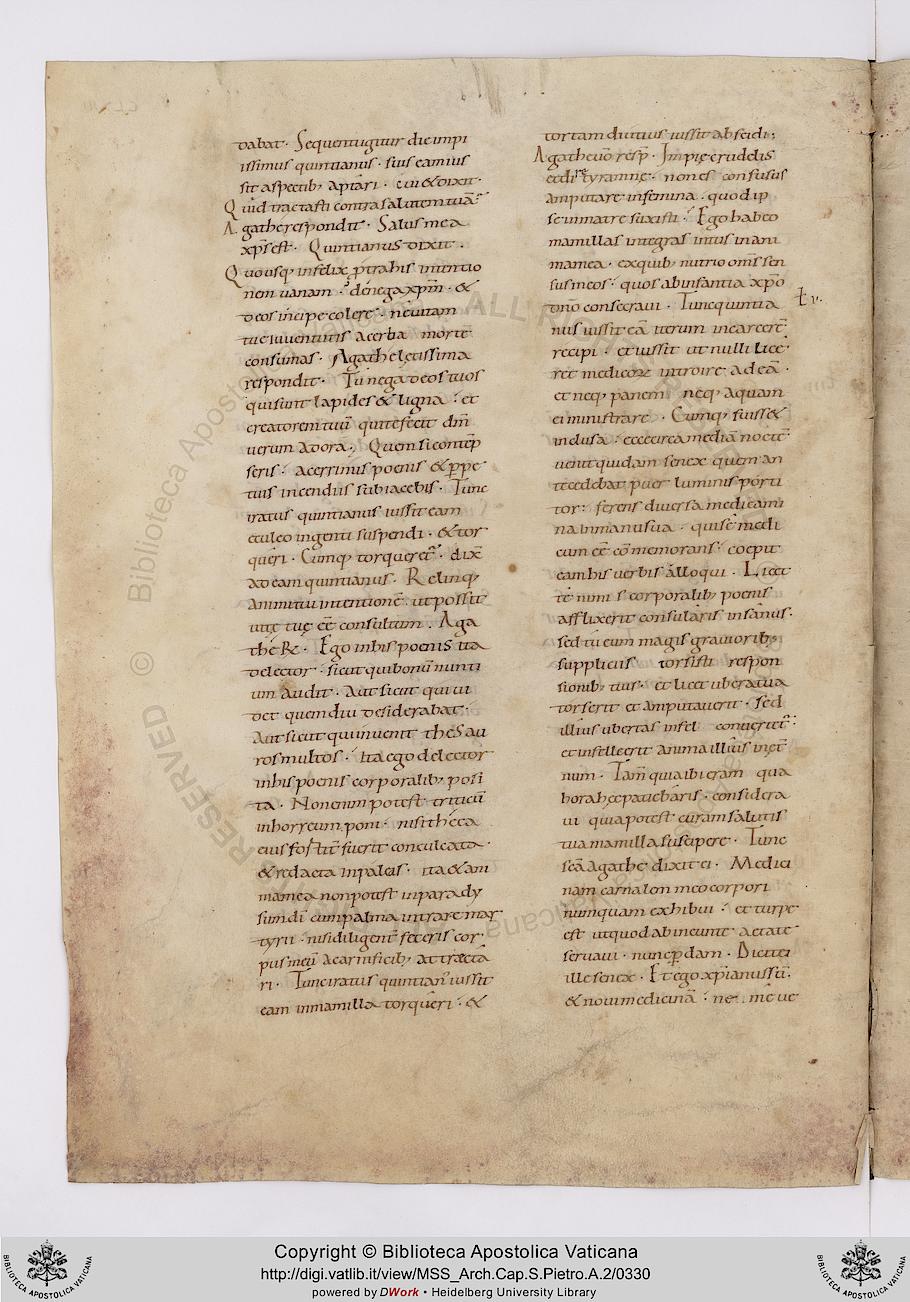 dabat · Sequenti igitur die impi
issimus quintianus · suis eam ius
sit aspectib; aptari · cui & dixit ·
Quid tractasti contra salutem tuā
Agathe respondit · Salus mea
xp̄s est · Quintianus dixit ·
Quousq; infelix ꝓtrahis intentio
nem uanam · denega xp̄m · &
deos incipe colere · ne uitam
tue iuuentutis acerba morte
consumas · Agathe letissima
respondit · Tu nega deos tuos
qui sunt lapides & ligna · et
creatorem tuū qui te fecit dm̄
uerum adora · Quem si contēp
seris · acerrimis poenis & ꝑpe
tuis incendiis subiacebis · Tunc
iratus quintianus iussit eam
eculeo ingenti suspendi · & tor
queri · Cumq; torqueret̄ · dix̄
ad eam quintianus · Relinq;
animi tui intentionē · ut possit
uitę tuę eē consultum · Aga
the R̄ · Ego in his poenis ita
delector · sicut qui bonū nunti
um audit · Aut sicut qui ui
det quem diu desiderabat ·
Aut sicut qui inuenit thesau
ros multos · Ita ego delector
in his poenis corporalib; posi
ta · Non enim potest triticū
in horreum poni · nisi theca
eius fortit̄ fuerit conculcata
& redacta in paleis · ita & ani
ma mea non potest in parady
sum di cum palma intrare mar
tyrii · nisi diligent̄ feceris cor
pus meū a carnificib; attrecta
ri · Tunc iratus quintian' iussit
eam in mamilla torqueri · &
tortam diutius iussit abscidi ;
Agathe uō resp̄ · Impie crudelis
et dire tyranne · non es confusus
amputare in femina · quod ip
se in matre suxisti · Ego habeo
mamillas integras intus in ani
ma mea · ex quib; nutrio om̄s sen
sus meos · quos ab infantia xp̄o
dn̄o consecraui · Tunc quintia
nus iussit eā iterum in carcerē
recipi · et iussit ut nulli lice
ret medicorum introire ad eā ·
et neq; panem neq; aquam
ei ministrare · Cumq; fuiss&
inclusa · ecce circa mediā noctē
uenit quidam senex quem an
tecedebat puer luminis porti
tor · ferens diuersa medicami
na in manu sua · qui se medi
cum eē cōmemorans · coepit
eam his uerbis alloqui · Licet
te nimis corporalib; poenis
afflixerit consularis insanus ·
sed tu eum magis grauiorib;
suppliciis torsisti respon
sionib; tuis · et licet ubera tua
torserit et amputauerit · sed
illius ubertas in fel conuertet̄
et in felle erit anima illius in ęt̄
num · Tam̄ quia ibi eram qua
hora hęc patiebaris · considera
ui quia potest curam salutis
tua mamilla suscipere · Tunc
scā Agathe dixit ei · Medici
nam carnalem meo corpori
numquam exhibui · et turpe
est ut quod ab ineunte aetate
seruaui · nunc ꝑdam · Dicit ei
ille senex · Et ego xp̄ianus sū ·
& noui medicinā · ne me ue
Biblioteca Apostolica Vaticana
© ALL RIGHTS RESERVED
Copyright © Biblioteca Apostolica Vaticana
http://digi.vatlib.it/view/MSS_Arch.Cap.S.Pietro.A.2/0330
powered by DWork • Heidelberg University Library
BIBLIOTECA APOSTOLICA VATICANA
BIBLIOTECA APOSTOLICA VATICANA